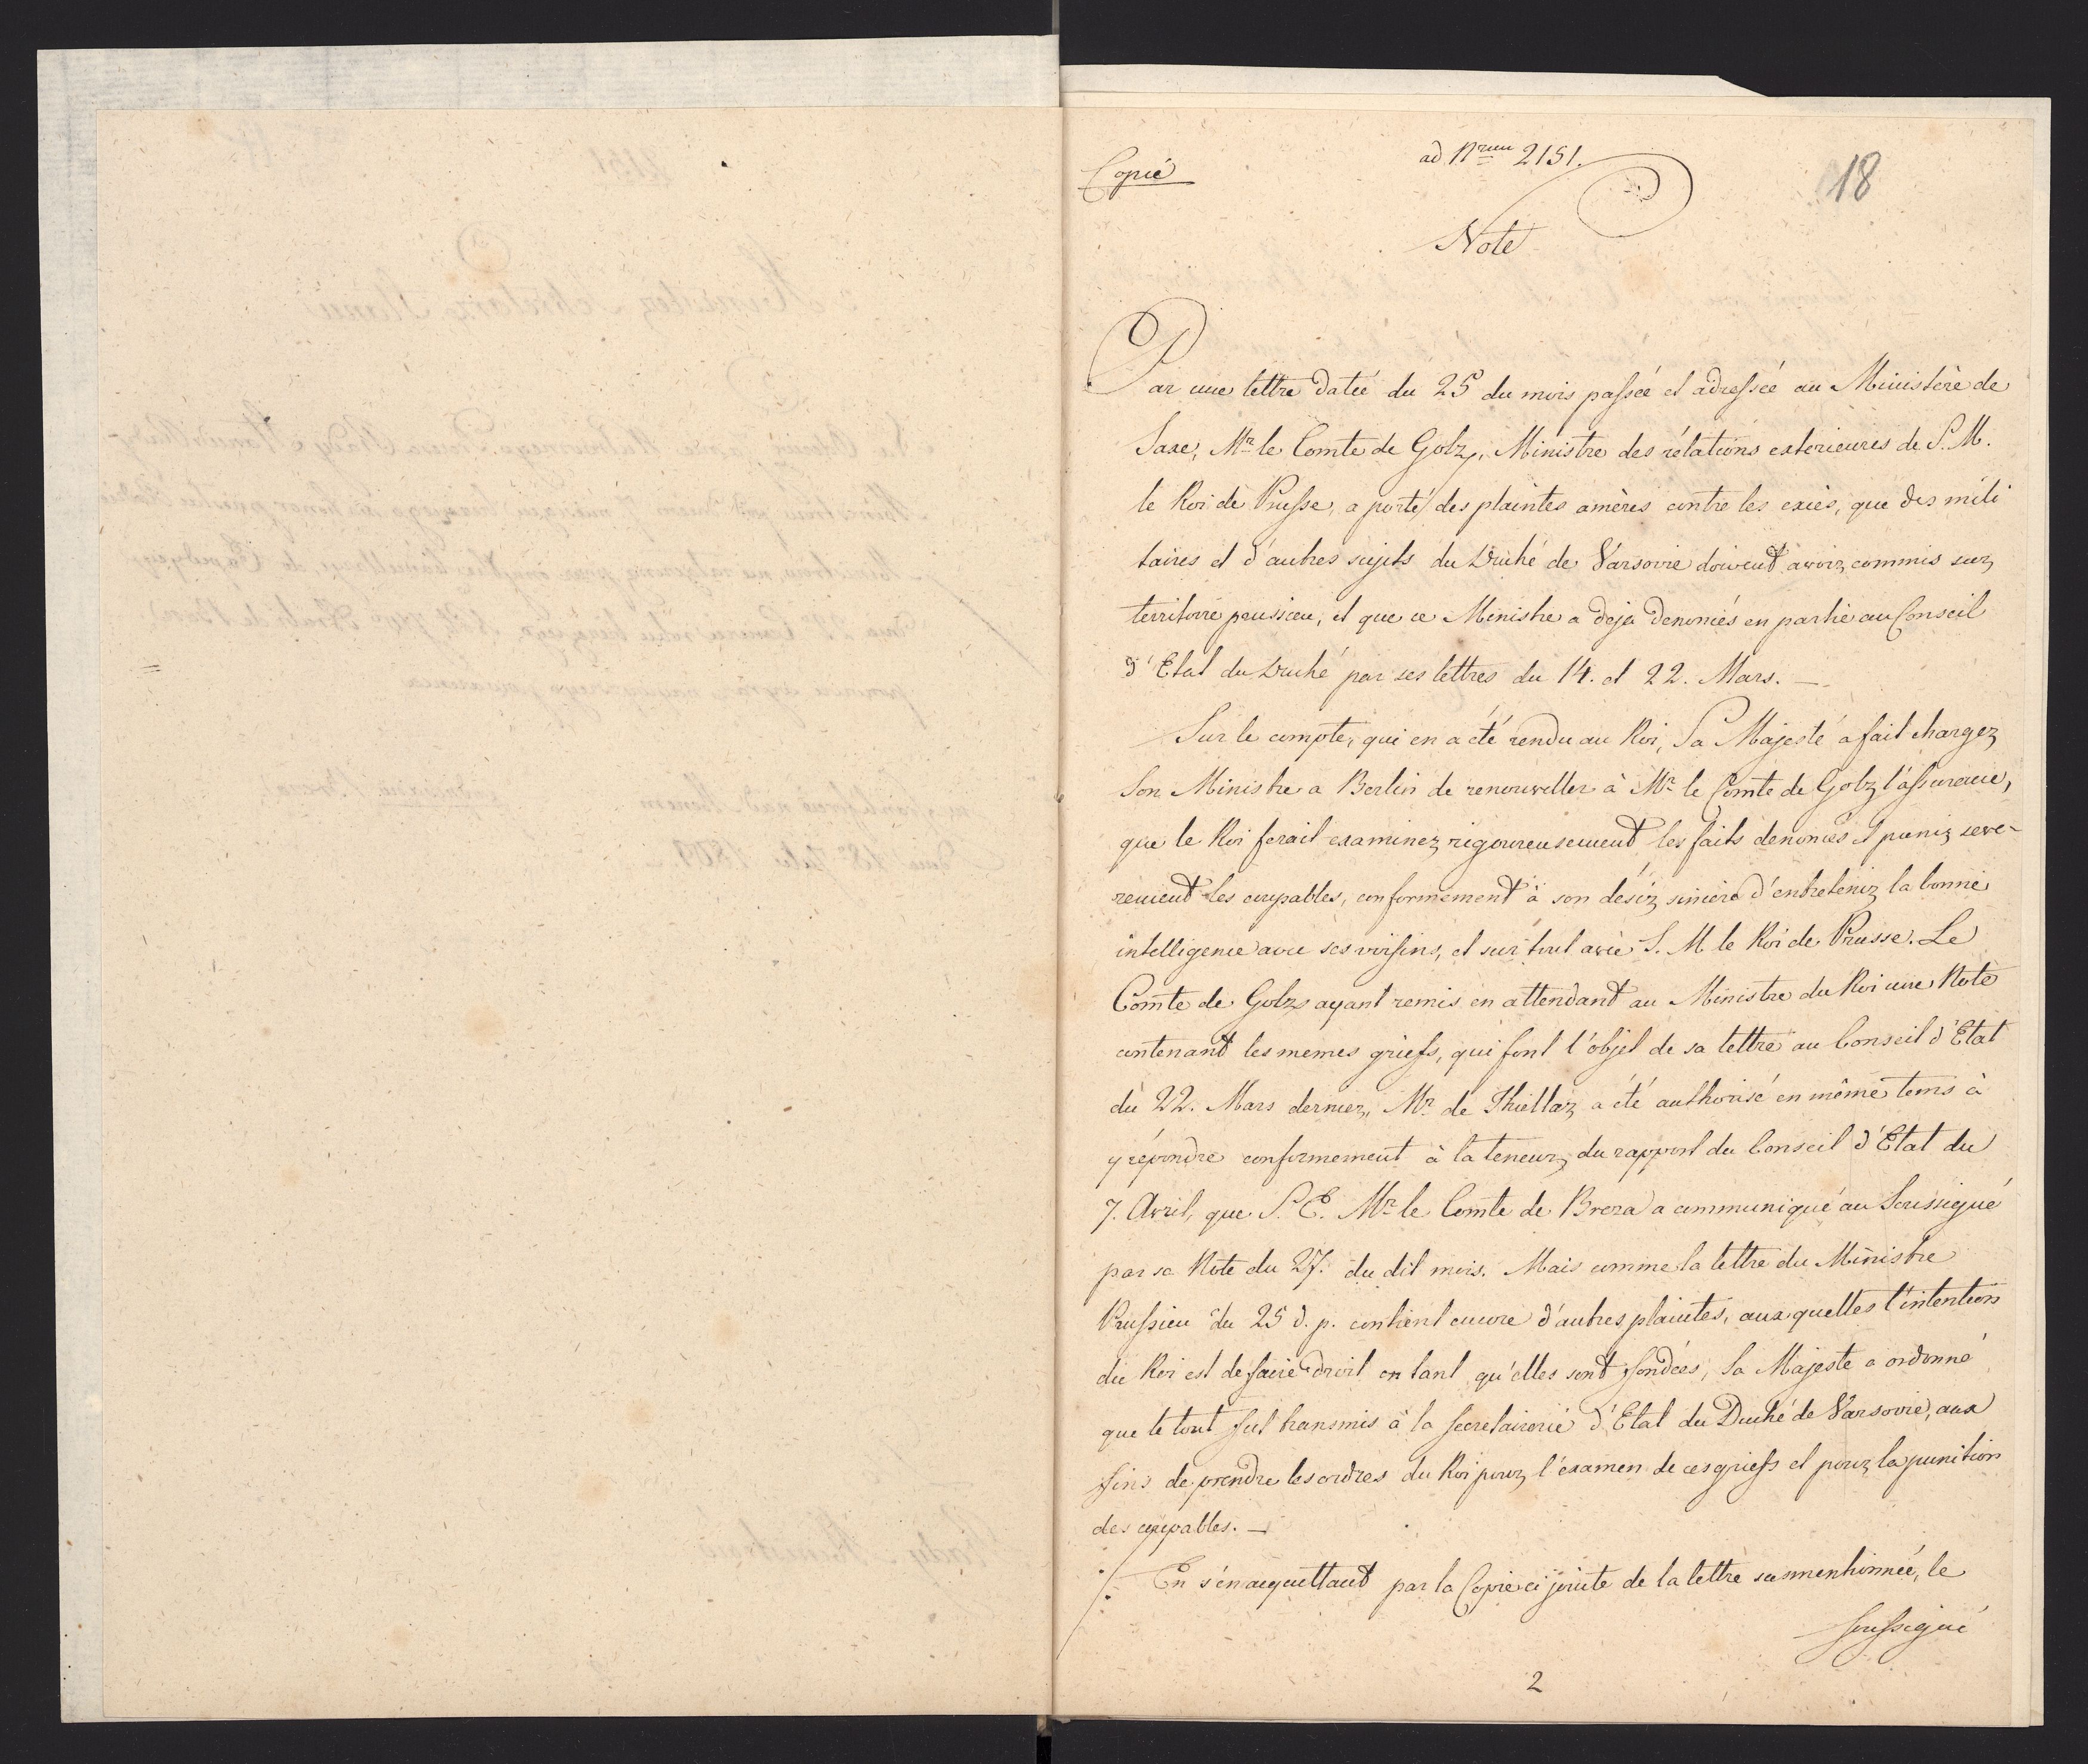 Copié
ad Nrum 2151.
18
Note
Par une lettre datée du 25 du mois passée et adressée au Ministère de
Saxe, Mr le Comte de Golz, Ministre des rélations exterieures de S. M.
le Roi de Prusse, a porté des plaintes amères contre les excès, que des mili
taires et d'autres sujets du Duché de Varsovie doivent avoir commis sur
territoire prussien, et que ce Ministre a deja denoncés en partie au Conseil
d'Etat du Duché par ses lettres du 14. et 22. Mars. —
Sur le compte, qui en a été rendu au Roi, Sa Majesté a fait charger
Son Ministre a Berlin de renouveller à Mr le Comte de Golz l'assurance,
que le Roi ferait examiner rigoureusement les faits denoncés et punir seve-
rement les coupables, conformement à son désir sincère d'entretenir la bonne
intelligence avec ses voisins, et sur tout avec S. M le Roi de Prusse. Le
Comte de Golz ayant remis en attendant au Ministre du Roi une Note
contenant les memes griefs, qui font l'objet de sa lettre au Conseil d'Etat
du 22. Mars dernier, Mr de Thiellar a été authorisé en même tems à
y répondre conformement à la teneur du rapport du Conseil d'Etat du
7. Avril, que S. E. Mr le Comte de Breza a communiqué au Soussigné
par sa Note du 27. du dit mois. Mais comme la lettre du Ministre
Prussien du 25 d. p. contient encore d'autres plaintes, aux quelles l'intention
du Roi est de faire droit en tant qu'elles sont fondées, Sa Majesté a ordonné
que le tout fut transmis à la Secretairerie d'Etat du Duché de Varsovie, aux
fins de prendre les ordres du Roi pour l'examen de ces griefs et pour la punition
des coupables. —
En s'en acquittant par la Copie ci jointe de la lettre susmentionnée, le
soussigné
2